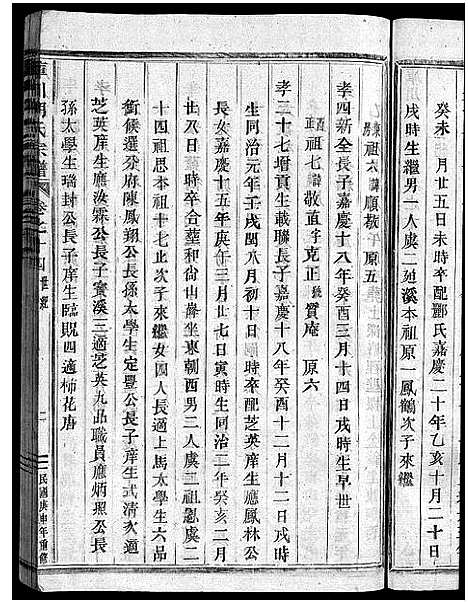 癸未 月廿五日未時卒配酈氏嘉慶二十年乙亥十月二十日
戌時生繼男一人虞二廷溪本祖原一鳳鶴次子來繼
祖太諱順敬 原五
孝四新全長子嘉慶十八年癸酉三月十四日戌時生早世
祖七諱敬直字克正號質庵 原六
孝三十七增貢生載聯長子嘉慶十八年癸酉十二月十二日戌時
生同治元年壬戌閏八月初十日時卒配芝英庠生應鳳林公
長女嘉慶十五年庚午三月廿七日寅時生同治二年癸亥二月
廿八日 時卒合葬和尚山 坐東朝西男二人虞二祖 虞二
十四祖思本祖十七止次子來繼女四人長適上馬太學生六品
銜候選分府陳鳳翔公長孫太學生定豐公長子庠生式清次適
芝英庠生應汝霖公長子寶溪三適芝英九品職員應炳照公長
孫太學生瑞封公長子庠生臨 四適柿花唐
氏宗譜 卷之十四 世
二
民國庚申年重修